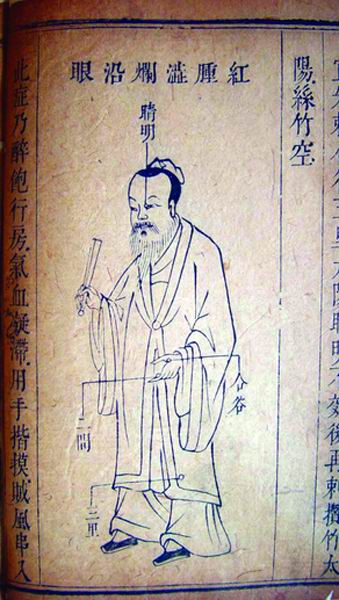 後再刺攢竹太
陽、絲竹空、
紅腫澁爛沿眼
睛明
合谷
二間
三里
此症乃醉飽行房、氣血凝滯、用手揩摸、賊風串入